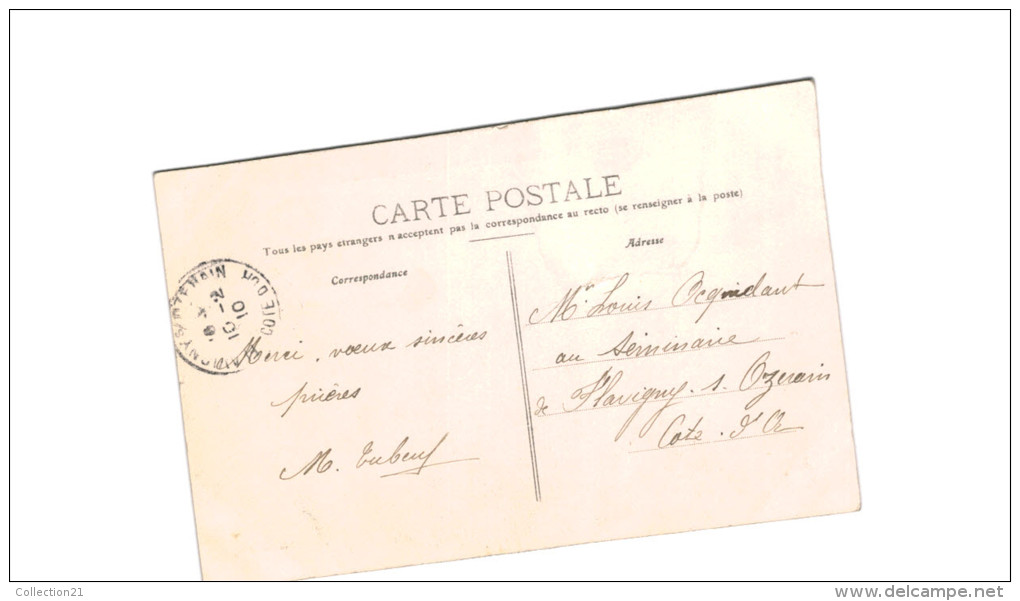 CARTE POSTALE
Tous les pays etrangers n acceptent pas la correspondance au recto (se renseigner à la poste)
Correspondance
Adresse
COTE D'OR
10-2
10
Merci, vœux sincères
prières
M. Tubeuf
Mr Louis Ocquidant
au Séminaire
de Flavigny. s. Ozerain
Cote. d'Or
Collection21
www.delcampe.net